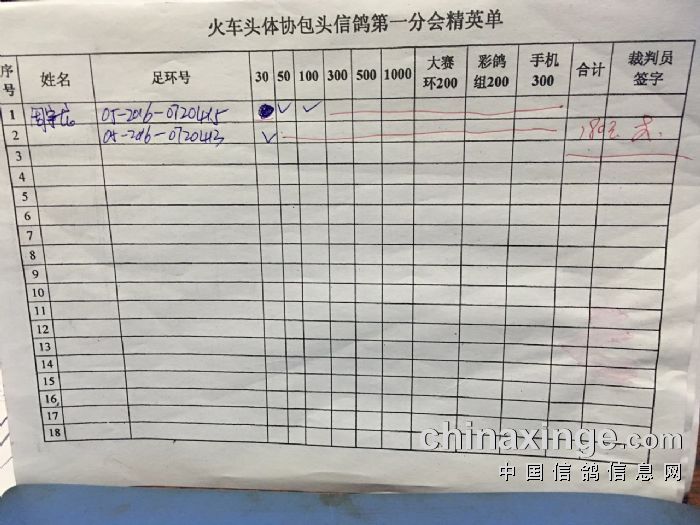 火车头体协包头信鸽第一分会精英单
序号 姓名 足环号 30 50 100 300 500 1000 大赛环200 彩鸽组200 手机300 合计 裁判员签字
1 05-2016-0720445 ✓ ✓
2 05-2016-0720443 ✓
3
4
5
6
7
8
9
10
11
12
13
14
15
16
17
18
chinaxinge.com
中国信鸽信息网